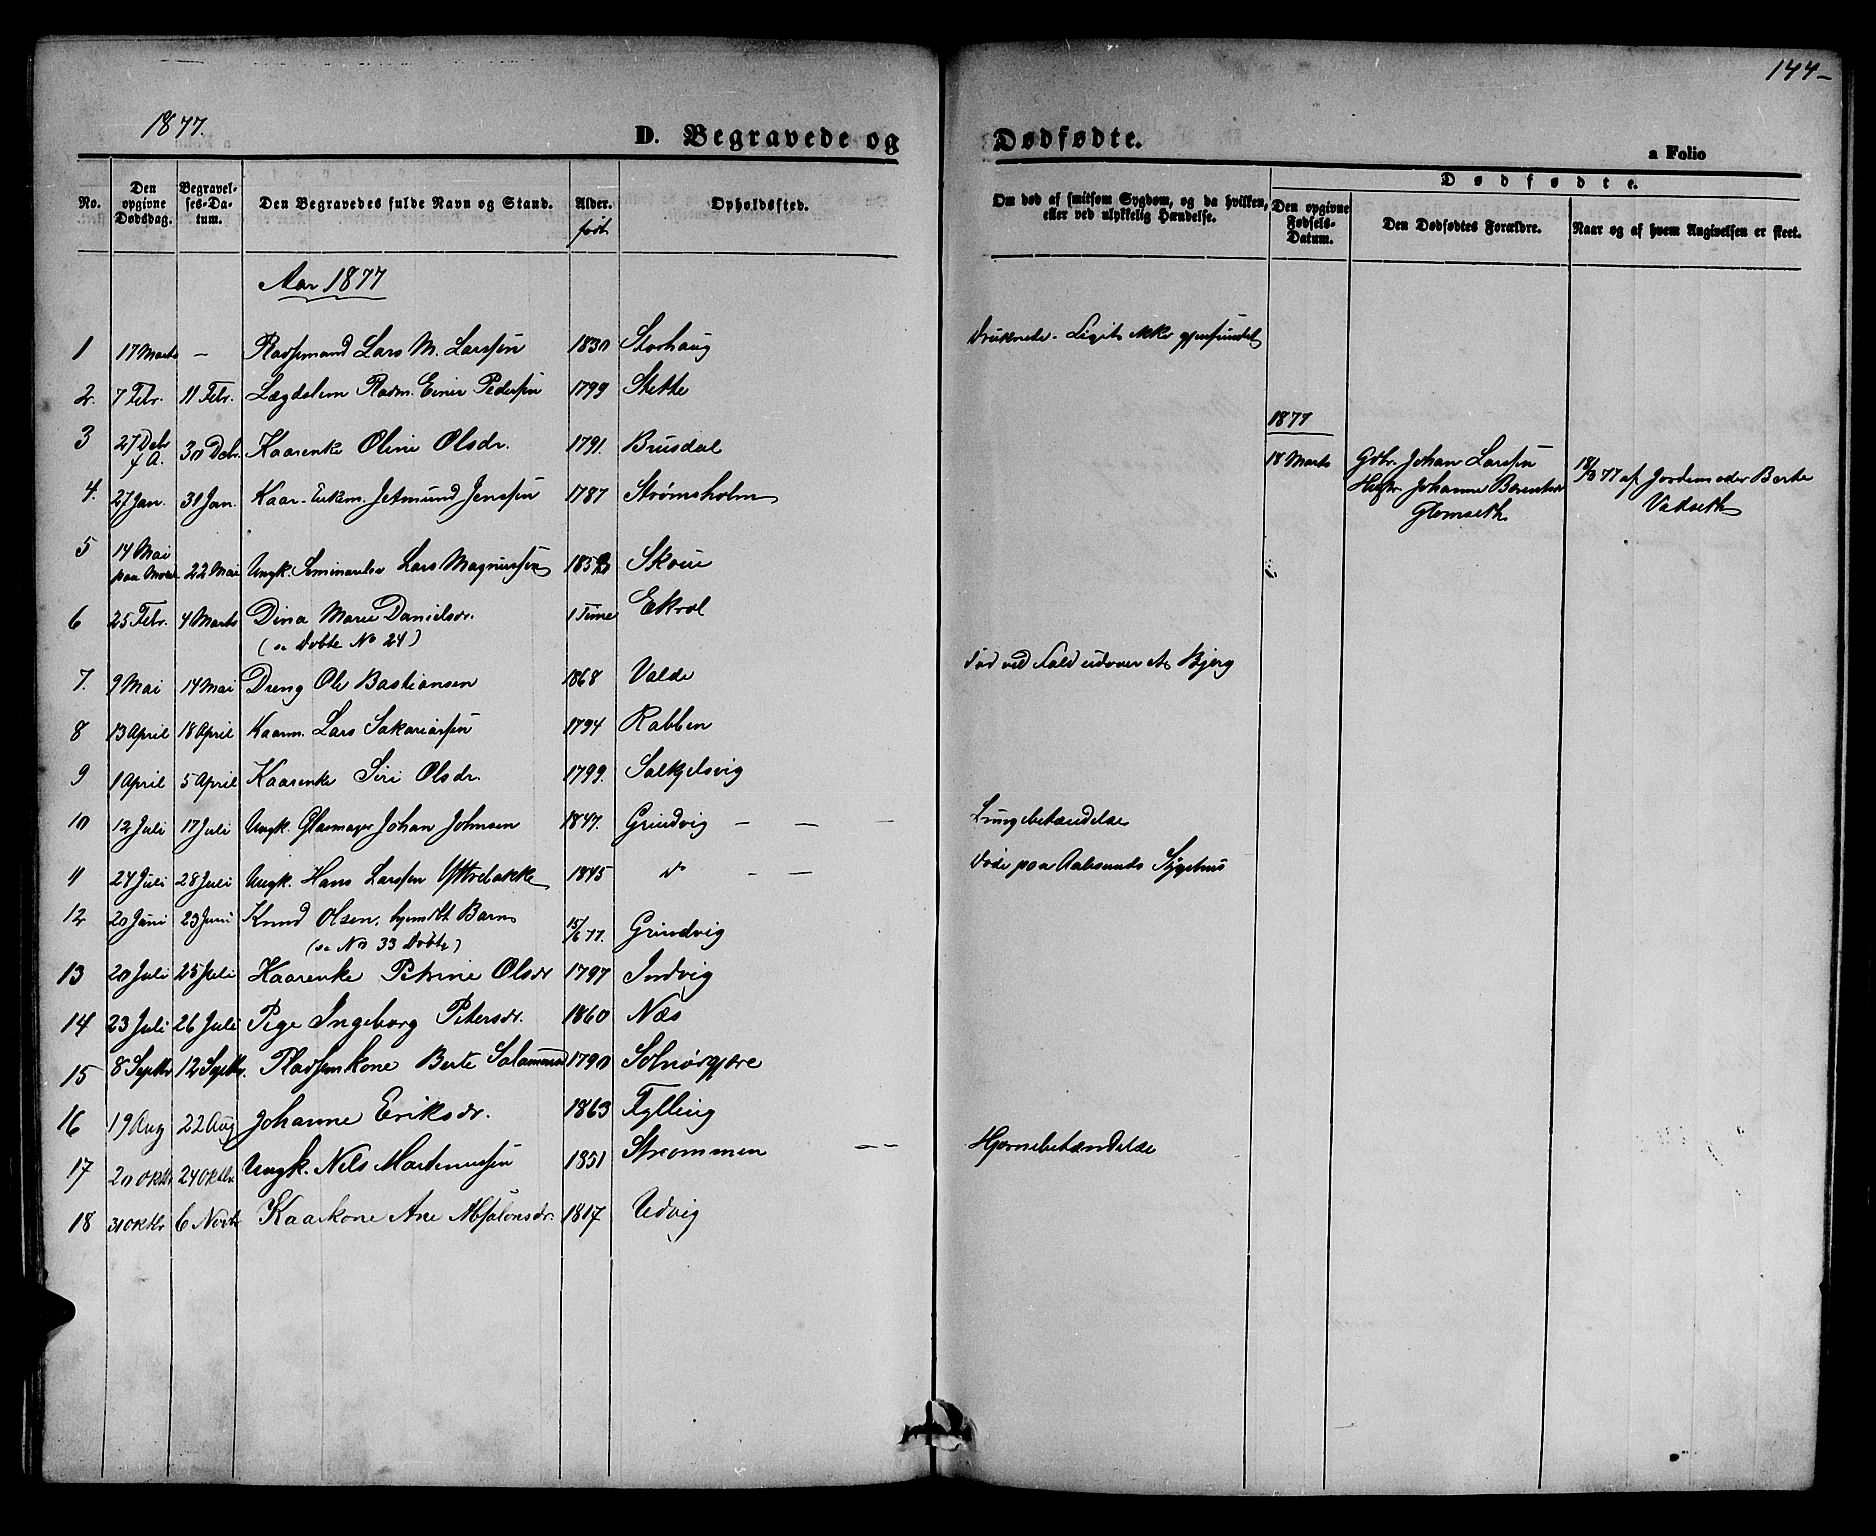 144-
1877.
D. Begravede og Dødfødte.
a Folio
No.
Den opgivne Dødsdag.
Begravelses-Datum.
Den Begravedes fulde Navn og Stand.
Alder. født
Opholdssted.
Om død af smitsom Sygdom, og da hvilken, eller ved ulykkelig Hændelse.
Dødfødte.
Den opgivne Fødsels-Datum.
Den Dødfødtes Forældre.
Naar og af hvem Angivelsen er skeet.
Aar 1877
1 17 Marts - Lars M. Larssen 1830 Storhaug Druknede. Liget ikke gjenfundet
2. 7 Febr. 11 Febr. Lægdslem Einer Pedersen 1799 Stette
3 27 Debr f. A. 30 Debr. Kaarenke Oline Olsdr. 1791. Brusdal
4. 27 Jan. 31 Jan. Kaar-Enkm. Jetmund Jenssen 1787 Strømsholm
5 14 Mai 22 Mai Ungk. Seminarelev Lars Magnussen Skoue
6 25 Febr. 4 Marts Dina Marie Danielsdr. 1 Time Ekrol
(se Døbte No 24)
7. 9 Mai 14 Mai Dreng Ole Bastiansen 1868 Valde Død ved Fald udover et Bjerg
8 13 April 18 April Kaarm. Lars Sakariassen 1794 Rabben
9 1 April 5 April Kaarenke Siri Olsdr. 1799. Salkjelsvig
10 12 Juli 17 Juli Ungk. Johan Johnsen 1847. Grindvig - - - Lungebetændelse
11 24 Juli 28 Juli Ungk. Hans Larssen Yttrebakke 1845 do - - Døde paa Aalesunds Sygehus
12 20 Juni 23 Juni Knud Olsen, hjemdøbt Barn 15/6 77. Grindvig
(se No 33 Døbte)
13 20 Juli 25 Juli Kaarenke Petrine Olsdr 1797 Indvig
14 23 Juli 26 Juli Pige Ingeborg Petersdr. 1860 Næs
15 8 Septbr 12 Septbr. Pladsenkone Berte 1790 Solnørgjære
16 19 Aug 22 Aug Johanne Eriksdr. 1863 Fylling
17 20 Oktbr 24 Oktbr. Ungk. Nils Martinussen 1851 Strømmen - - Hjernebetændelse
18 31 Oktbr 6 Novbr Kaarkone Ane Absalonsdr. 1817 Udvig
1877
18 Marts Gdbr. Johan Larssen 18/3 77 af Jordemoder Berte
Hustr. Johanne Berentsdr Vatseth
Glomseth